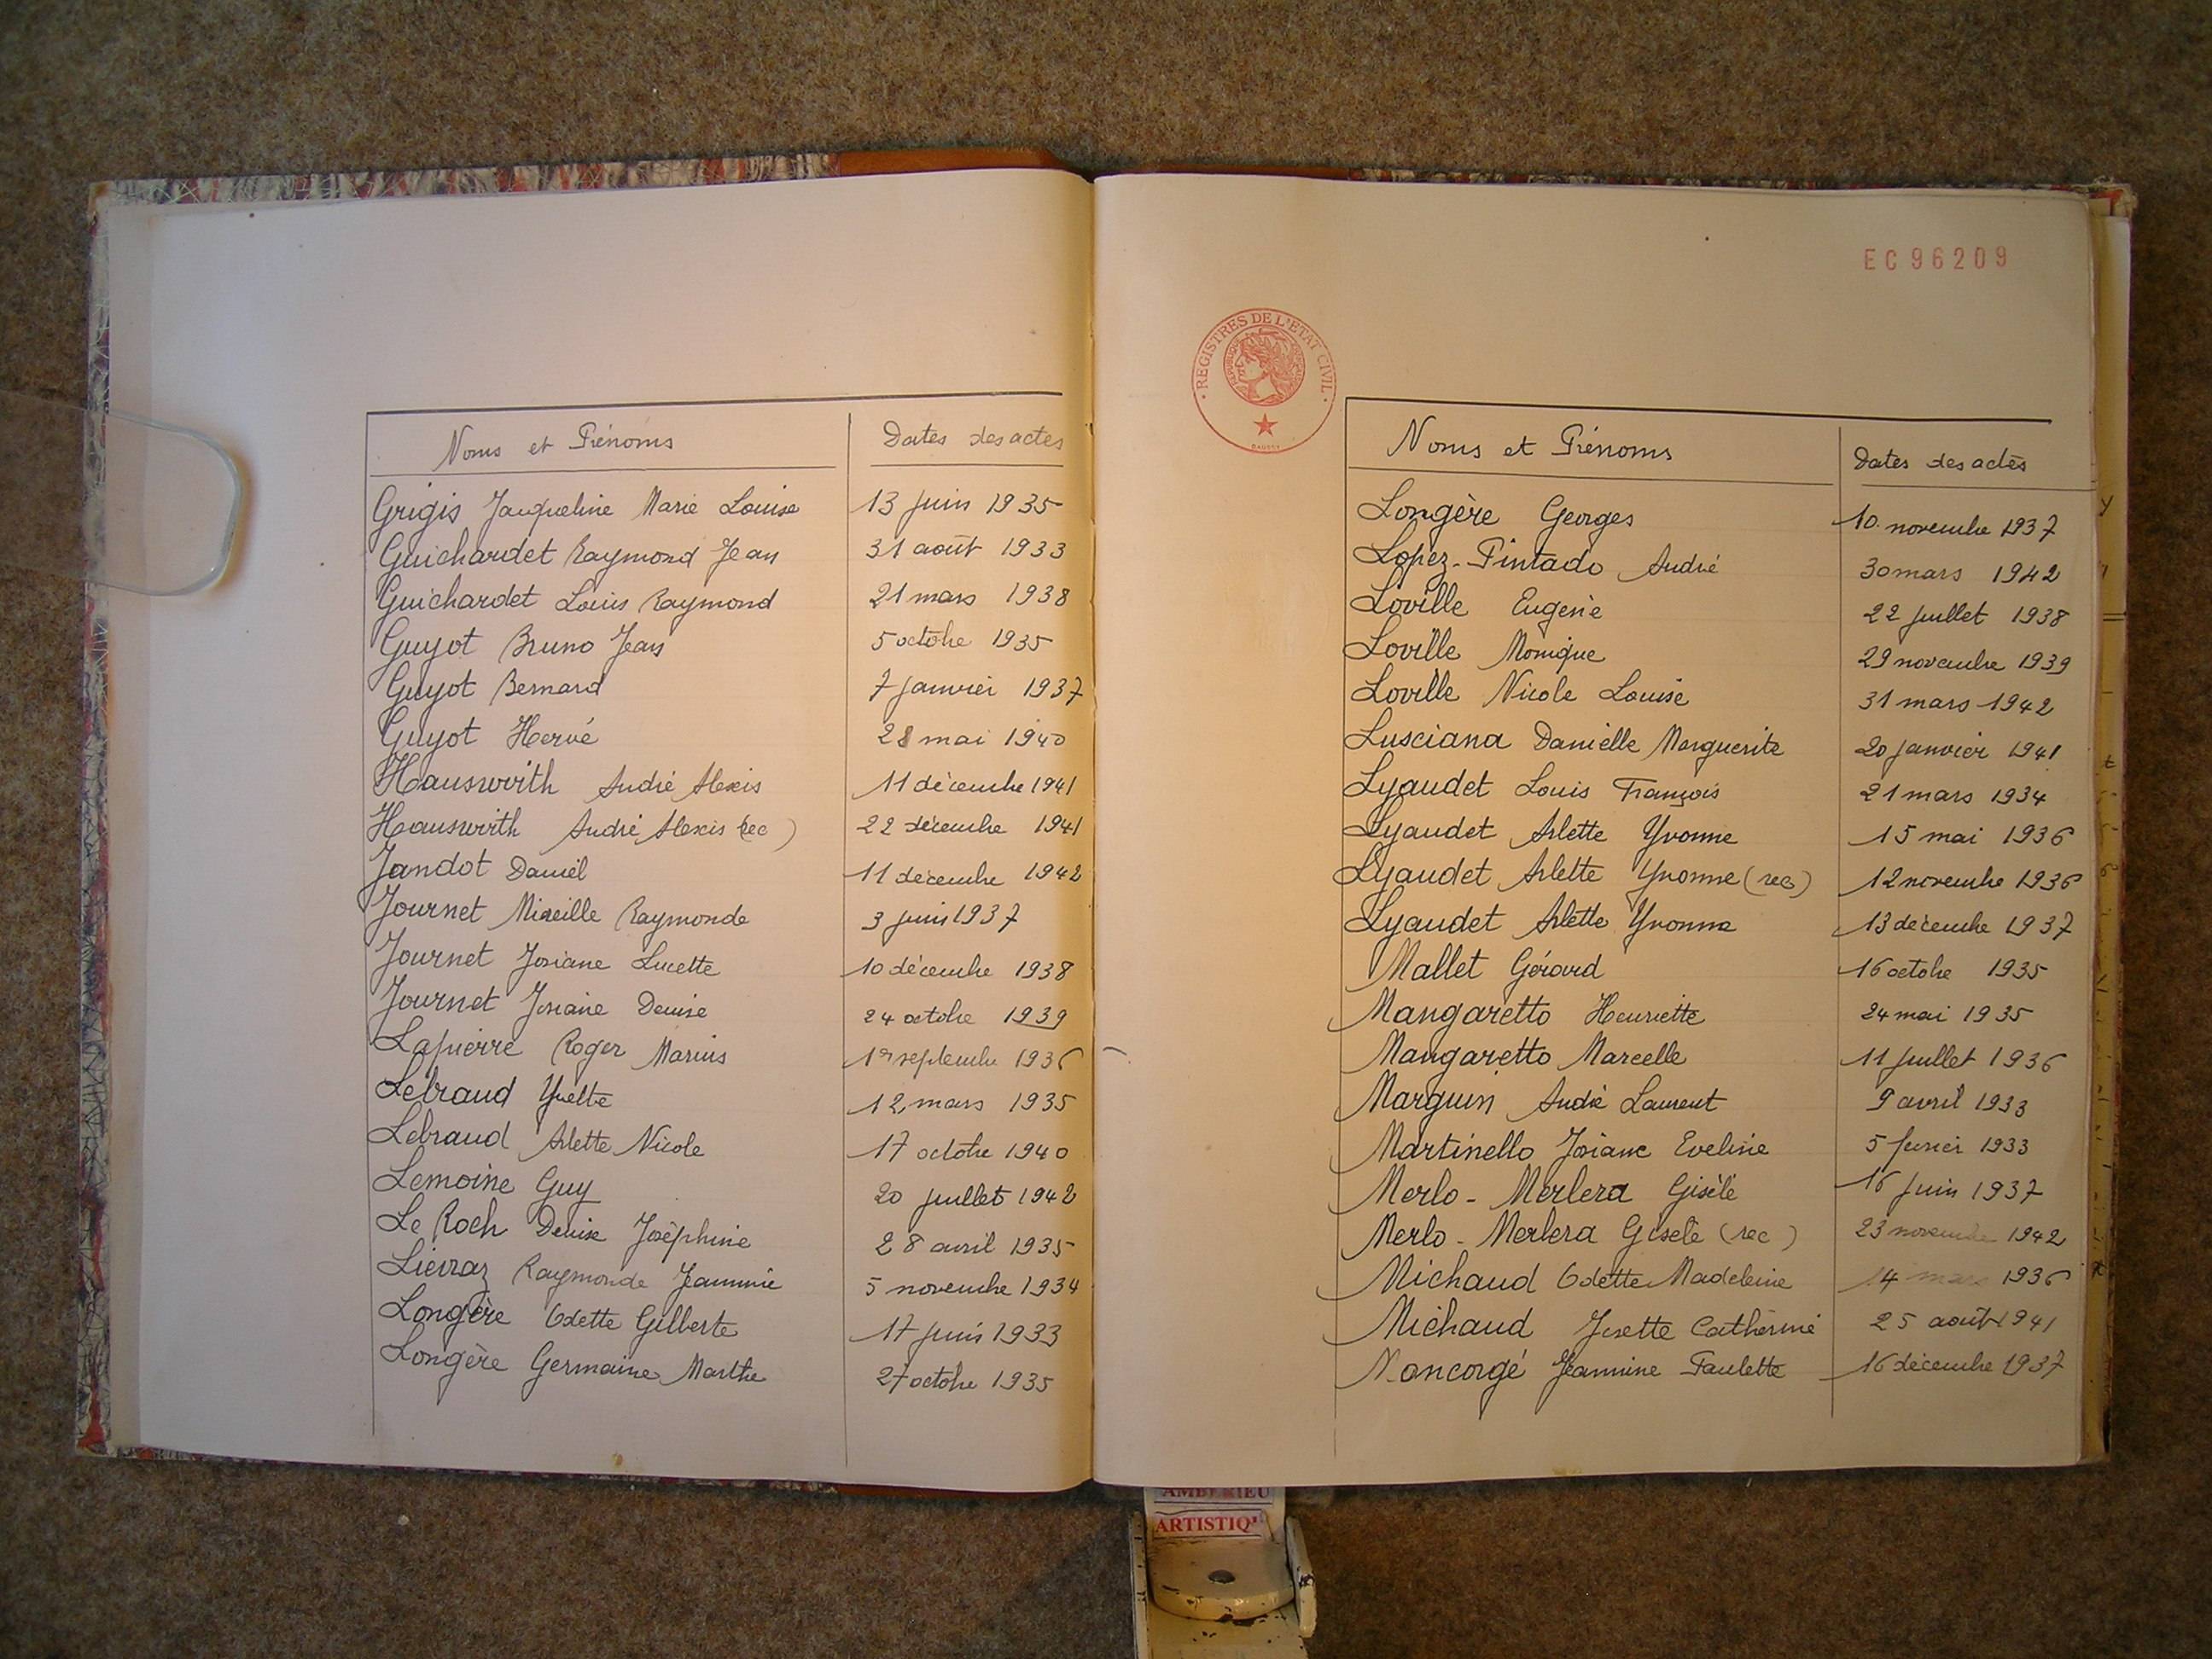 Noms et Prénoms Dates des actes
Grigis Jacqueline Marie Louise 13 juin 1935
Guichardet Raymond Jean 31 août 1933
Guichardet Louis Raymond 21 mars 1938
Guyot Bruno Jean 5 octobre 1935
Guyot Bernard 7 janvier 1937
Guyot Hervé 28 mai 1940
Hauswirth André Alexis 11 décembre 1941
Hauswirth André Alexis (rec) 22 décembre 1941
Jandot Daniel 11 décembre 1942
Journet Mireille Raymonde 3 juin 1937
Journet Josiane Lucette 10 décembre 1938
Journet Josiane Denise 24 octobre 1939
Lapierre Roger Marius 1er septembre 1936
Lebraud Yvette 12 mars 1935
Lebraud Arlette Nicole 17 octobre 1940
Lemoine Guy 20 juillet 1942
Le Roch Denise Joséphine 28 avril 1935
Liévraz Raymonde Jeannine 5 novembre 1934
Longère Odette Gilberte 17 juin 1933
Longère Germaine Marthe 27 octobre 1935
EC96209
REGISTRES DE L'ETAT CIVIL
Noms et Prénoms Dates des actes
Longère Georges 10 novembre 1937
Lopez-Pintado André 30 mars 1942
Loville Eugénie 22 juillet 1938
Loville Monique 29 novembre 1939
Loville Nicole Louise 31 mars 1942
Lusciana Danielle Marguerite 20 janvier 1941
Lyaudet Louis François 21 mars 1934
Lyaudet Arlette Yvonne 15 mai 1936
Lyaudet Arlette Yvonne (rec) 12 novembre 1936
Lyaudet Arlette Yvonne 13 décembre 1937
Mallet Gérard 16 octobre 1935
Mangaretto Henriette 24 mai 1935
Mangaretto Marcelle 11 juillet 1936
Marguin André Laurent 9 avril 1933
Martinello Josiane Eveline 5 février 1933
Merlo-Merlera Gisèle 16 juin 1937
Merlo-Merlera Gisèle (rec) 23 novembre 1942
Michaud Odette Madeleine 14 mars 1936
Michaud Josette Catherine 25 août 1941
Moncorgé Jeannine Paulette 16 décembre 1937
AMBERIEU
ARTISTIQ